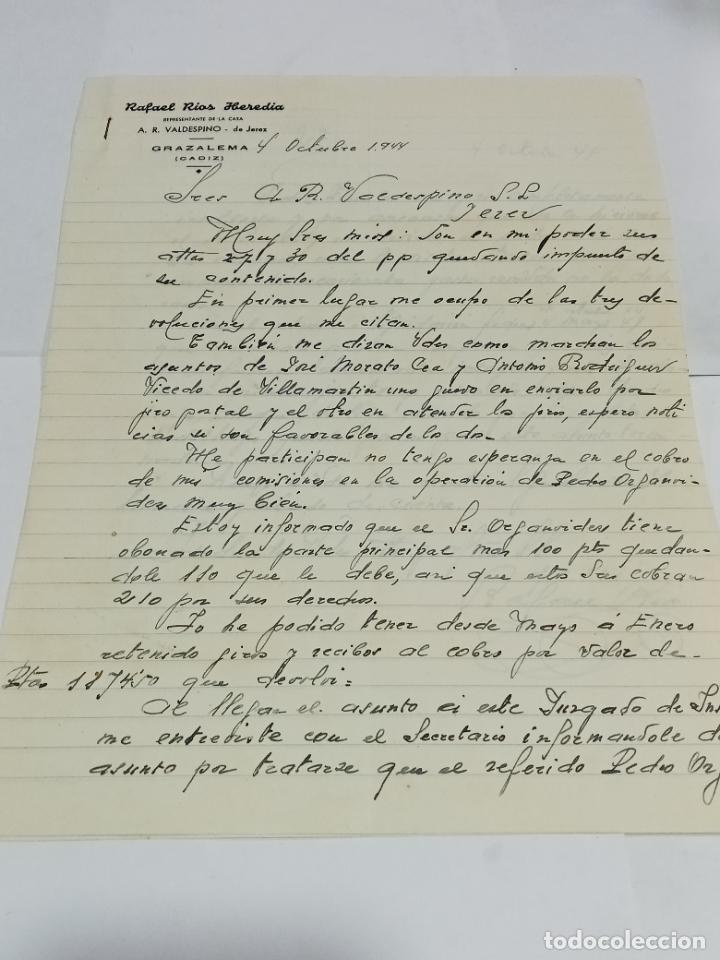 Rafael Rios Heredia
REPRESENTANTE DE LA CASA
A. R. VALDESPINO - de Jerez
GRAZALEMA
(CADIZ)
4 Octubre 1.944
Sres A. R. Valdespino S. L
Jerez
Muy Sres mios: Son en mi poder sus
attas 27 y 30 del pp quedando impuesto de
su contenido.
En primer lugar me ocupo de las tres de-
voluciones que me citan.
También me diran Vdes como marchan los
asuntos de José Morato Cea y Antonio Rodriguez
Vicedo de Villamartin uno quedo en enviarlo por
jiro postal y el otro en atender los jiros, espero noti
cias si son favorables de los dos.
Me participan no tengo esperanza en el cobro
de mis comisiones en la operación de Pedro Organvi-
dez muy bien.
Estoy informado que el Sr. Organvidez tiene
abonado la parte principal mas 100 pts quedan-
dole 110 que le debe, asi que estos Sres cobran
210 por sus derechos.
Yo he podido tener desde Mayo á Enero
retenido giros y recibos al cobro por valor de-
Ptas 11.745,0 que devolvi=
Al llegar el asunto a este Juzgado de Ins
me entrebiste con el Secretario informandole d
asunto por tratarse que el referido Pedro Org
todocoleccion.net